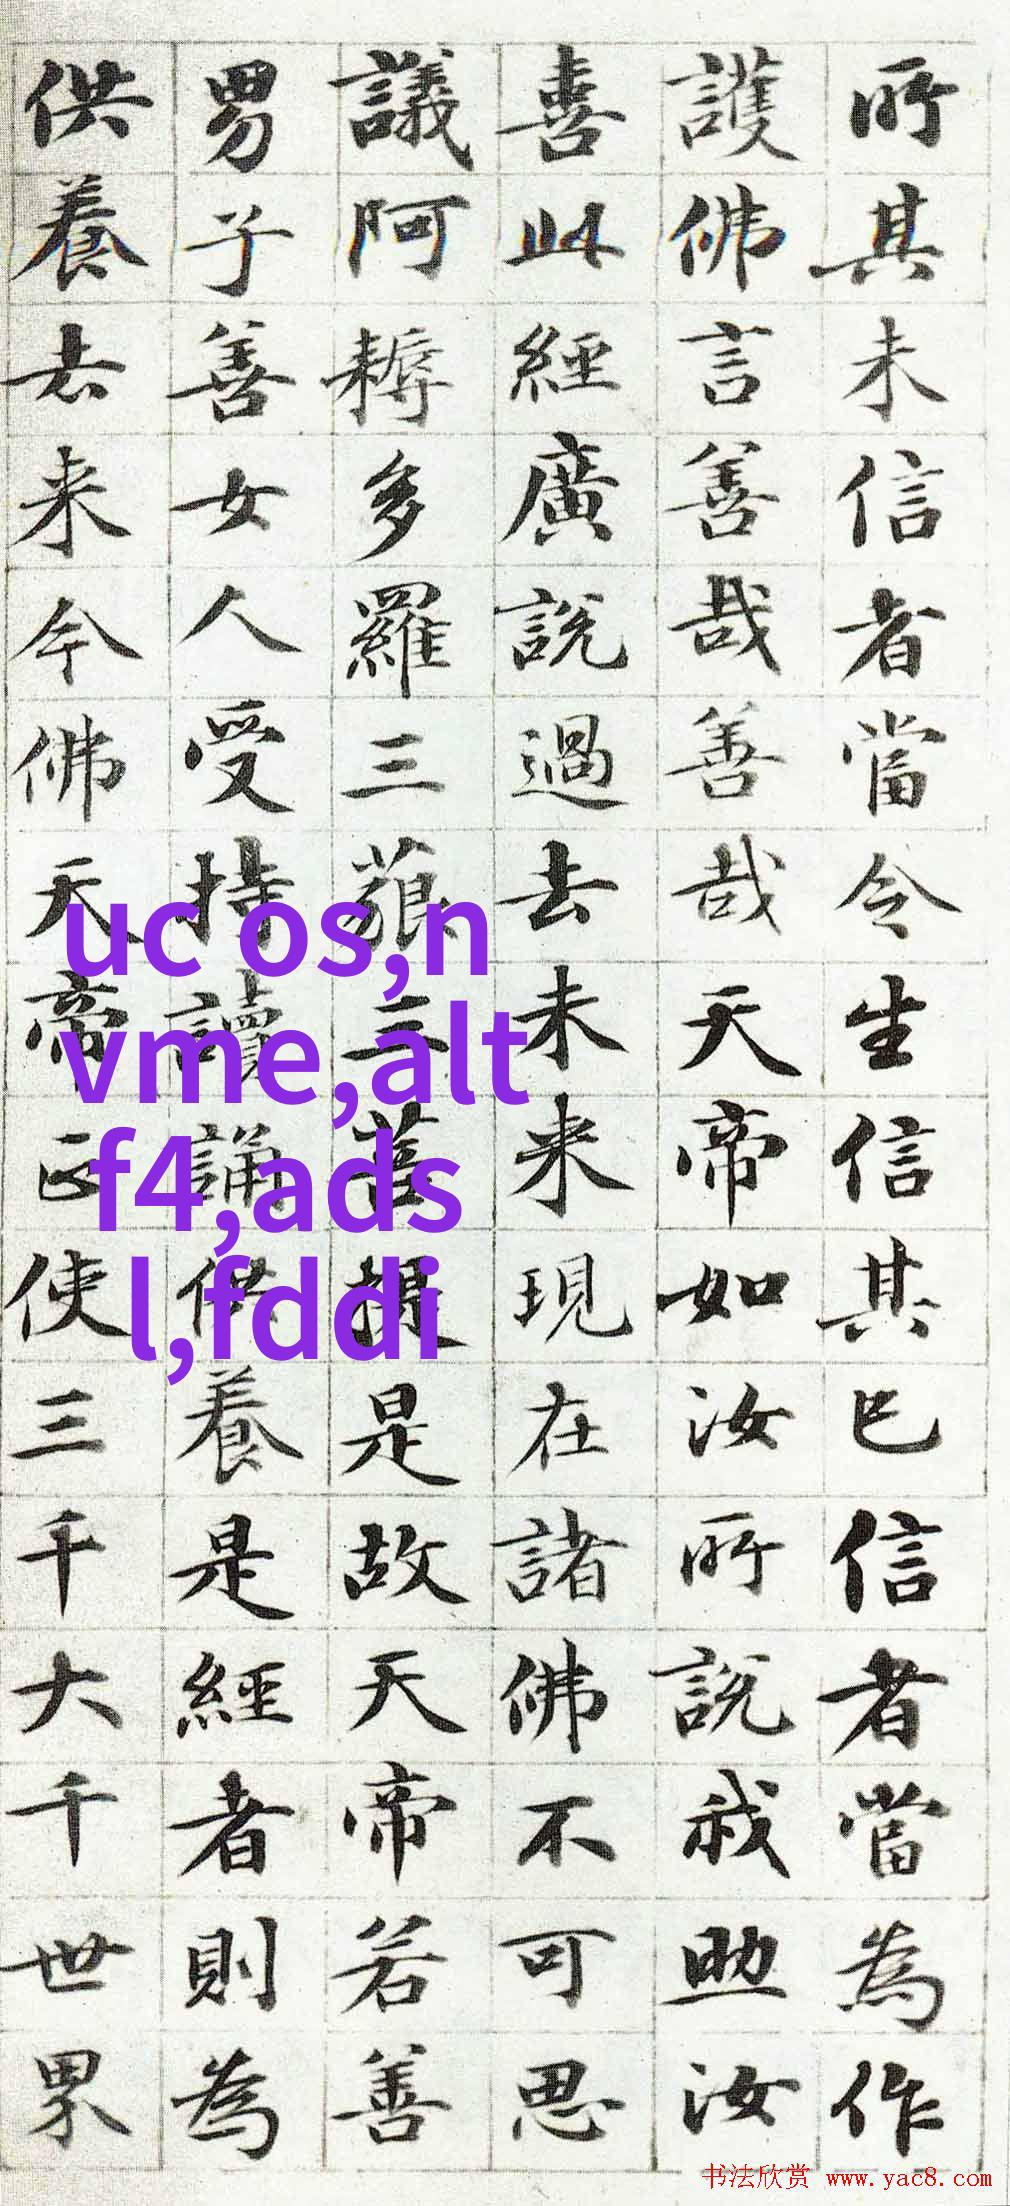 所其未信者當令生信其已信者當為作
護佛言善哉善哉天帝如汝所說我助汝
喜此經廣說過去未来現在諸佛不可思
議阿耨多羅三藐三菩提是故天帝若善
男子善女人受持讀誦供養是經者則為
供養去来今佛天帝正使三千大千世界
uc os,n
vme,alt
f4,ads
l,fddi
书法欣赏 www.yac8.com